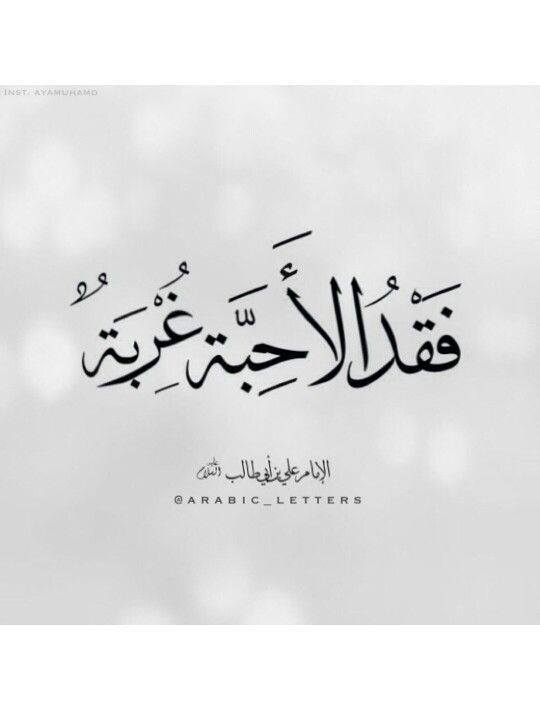 INST. AYAMUHAMD
فَقْدُ الأَحِبَّةِ غُرْبَةٌ
الإمام علي بن أبي طالب عليه السلام
@ARABIC_LETTERS